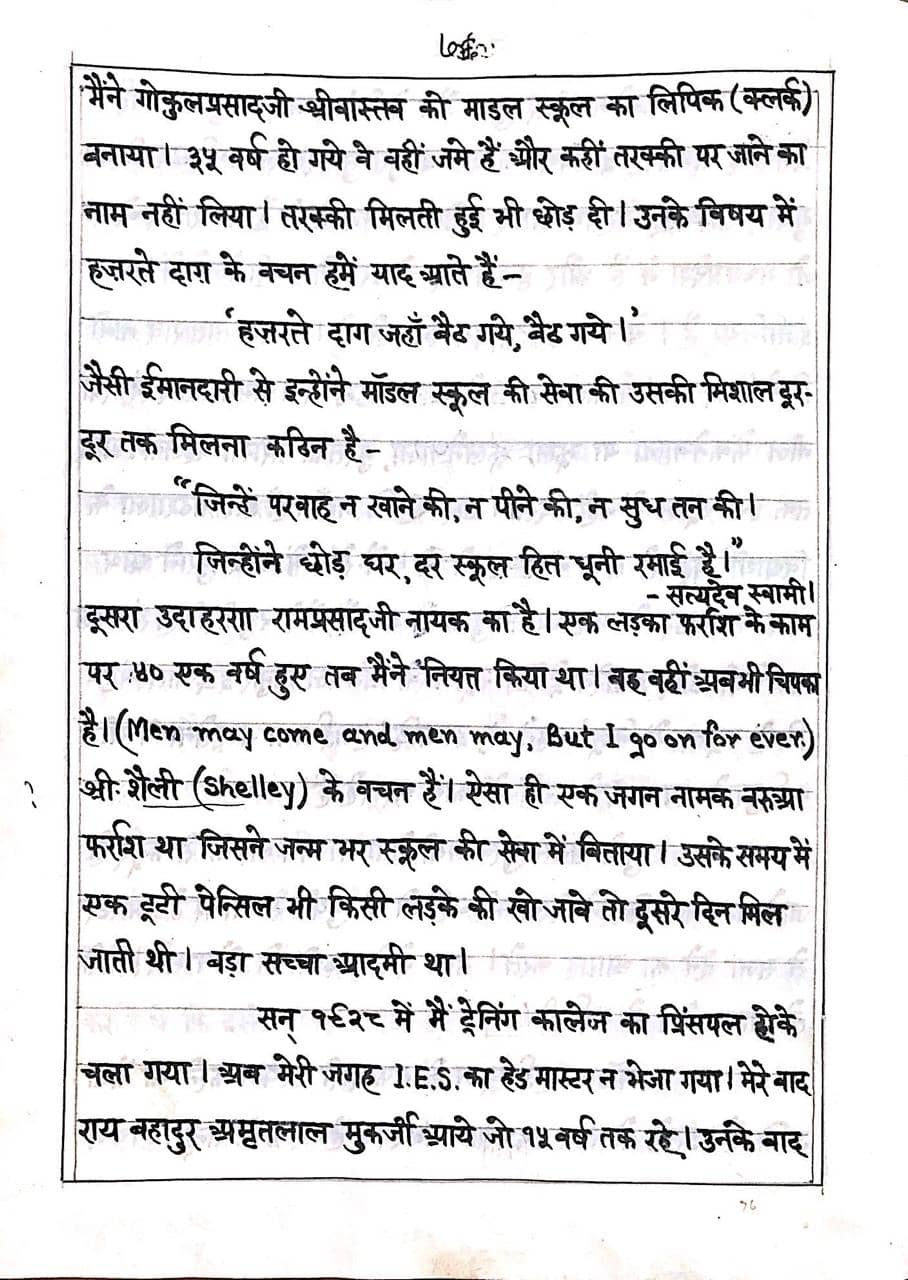 मैंने गोकुलप्रसादजी श्रीवास्तव को माडल स्कूल का लिपिक (क्लर्क)
बनाया। ३५ वर्ष हो गये वे वहीं जमे हैं और कहीं तरक्की पर जाने का
नाम नहीं लिया। तरक्की मिलती हुई भी छोड़ दी। उनके विषय में
हज़रते दाग़ के वचन हमें याद आते हैं -
'हज़रते दाग जहाँ बैठ गये, बैठ गये।'
जैसी ईमानदारी से इन्होंने मॉडल स्कूल की सेवा की उसकी मिशाल दूर-
दूर तक मिलना कठिन है -
"जिन्हें परवाह न खाने की, न पीने की, न सुध तन की।
जिन्होंने छोड़ घर, दर स्कूल हित धूनी रमाई है।"
- सत्यदेव स्वामी।
दूसरा उदाहरण रामप्रसादजी नायक का है। एक लड़का फर्राश के काम
पर ४० एक वर्ष हुए तब मैंने नियत किया था। वह वहीं अब भी चिपका
है। (Men may come and men may, But I go on for ever.)
? श्री शैली (Shelley) के वचन हैं। ऐसा ही एक जगन नामक बरुआ
फर्राश था जिसने जन्म भर स्कूल की सेवा में बिताया। उसके समय में
एक टूटी पेन्सिल भी किसी लड़के की खो जावे तो दूसरे दिन मिल
जाती थी। बड़ा सच्चा आदमी था।
सन् १९२८ में मैं ट्रेनिंग कालेज का प्रिंसपल होके
चला गया। अब मेरी जगह I.E.S. का हेड मास्टर न भेजा गया। मेरे बाद
राय बहादुर अमृतलाल मुकर्जी आये जो १५ वर्ष तक रहे। उनके बाद